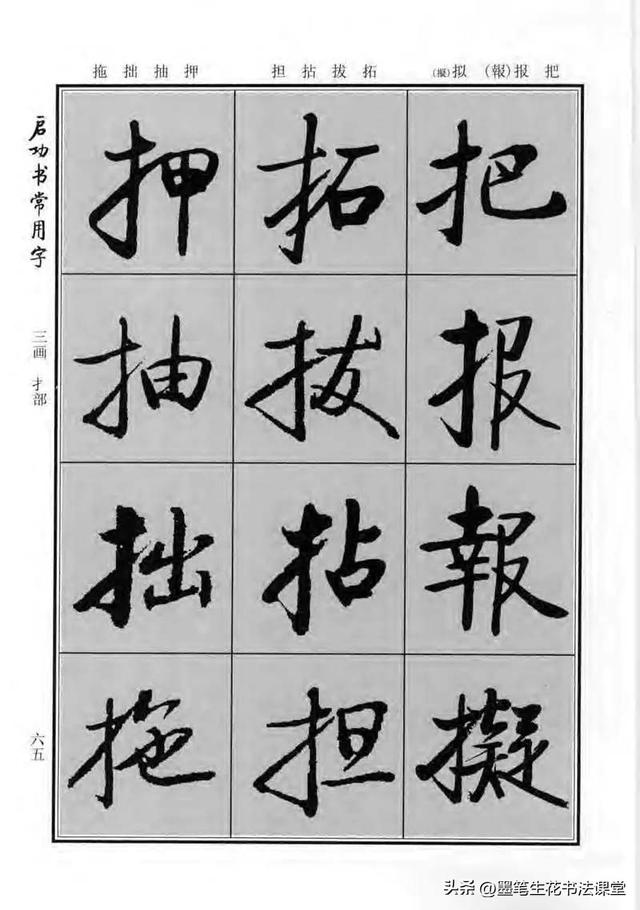 把 报(報) 拟(擬)
拓 拔 拈 担
押 抽 拙 拖
启功书常用字
三画 扌部
六五
把
报
報
擬
拓
拔
拈
担
押
抽
拙
拖
头条 @墨笔生花书法课堂